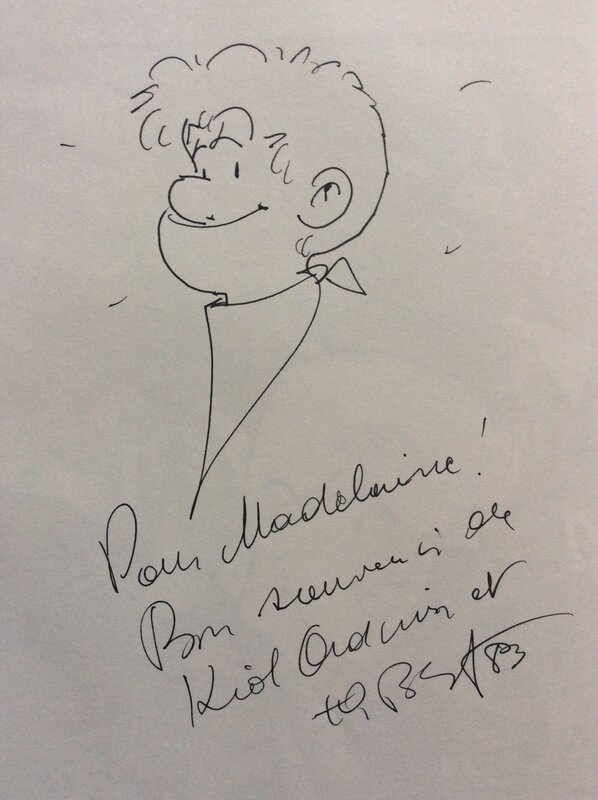 Pour Madelaine!
Bon souvenir de
Kid Ordinn et
Tibet 83